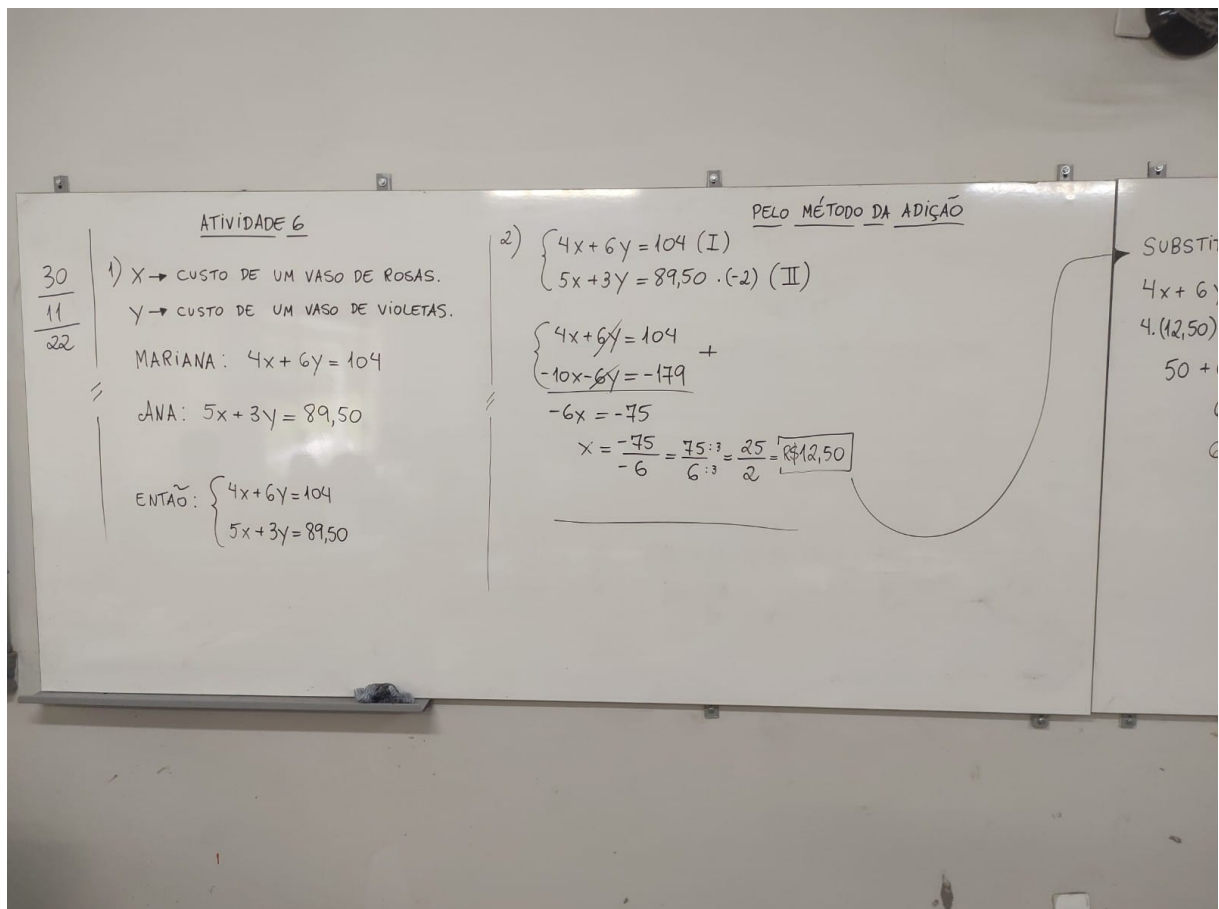 30
11
22
ATIVIDADE 6
1) X → CUSTO DE UM VASO DE ROSAS.
Y → CUSTO DE UM VASO DE VIOLETAS.
MARIANA: 4X + 6Y = 104
ANA: 5X + 3Y = 89,50
ENTÃO: { 4X + 6Y = 104
5X + 3Y = 89,50
PELO MÉTODO DA ADIÇÃO
2) { 4X + 6Y = 104 (I)
5X + 3Y = 89,50 . (-2) (II)
{ 4X + 6Y = 104
-10X - 6Y = -179 +
-6X = -75
X = -75/-6 = 75:3/6:3 = 25/2 = R$12,50
4X + 6Y
4.(12,50)
50 +